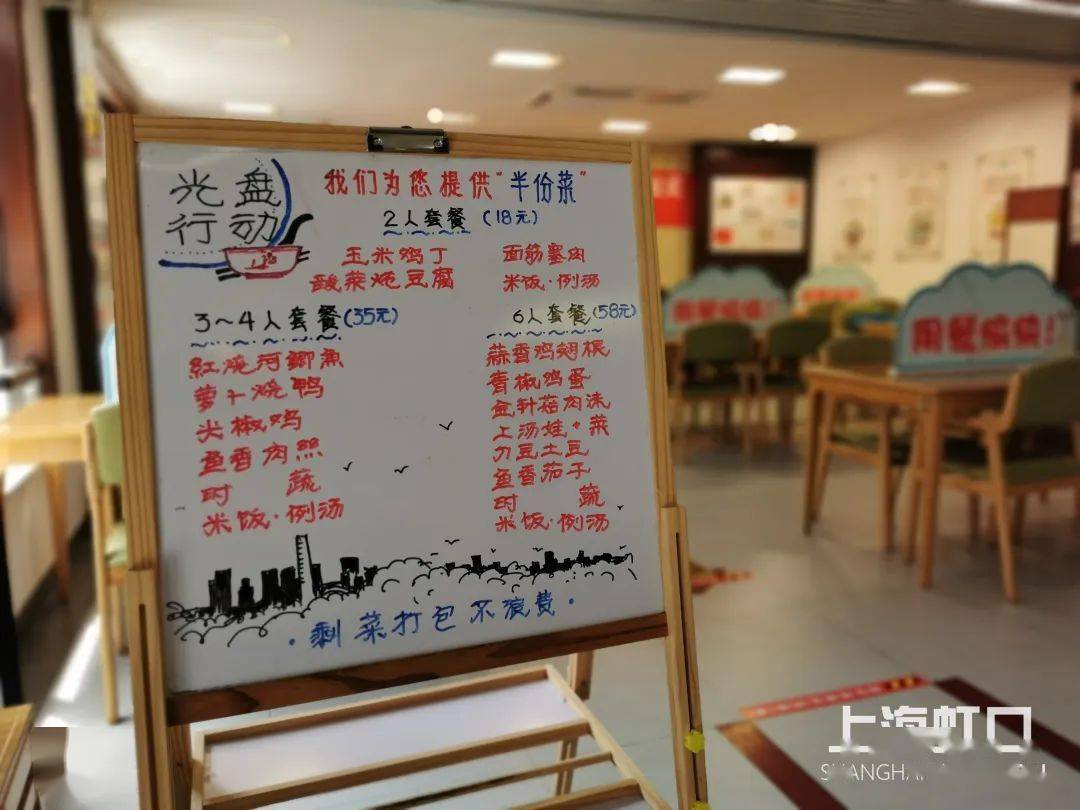 光盘
行动
我们为您提供"半份菜"
2人套餐 (18元)
玉米鸡丁 面筋塞肉
酸菜炖豆腐 米饭·例汤
3~4人套餐(35元)
紅溪河鲫魚
萝卜烧鸭
尖椒鸡
鱼香肉丝
时 蔬
米饭·例汤
6人套餐(58元)
蒜香鸡翅根
青椒鸡蛋
金针菇肉沫
上汤娃·菜
刀豆土豆
鱼香茄子
时 蔬
米饭·例汤
·剩菜打包不浪费·
用餐愉快!
上海虹口